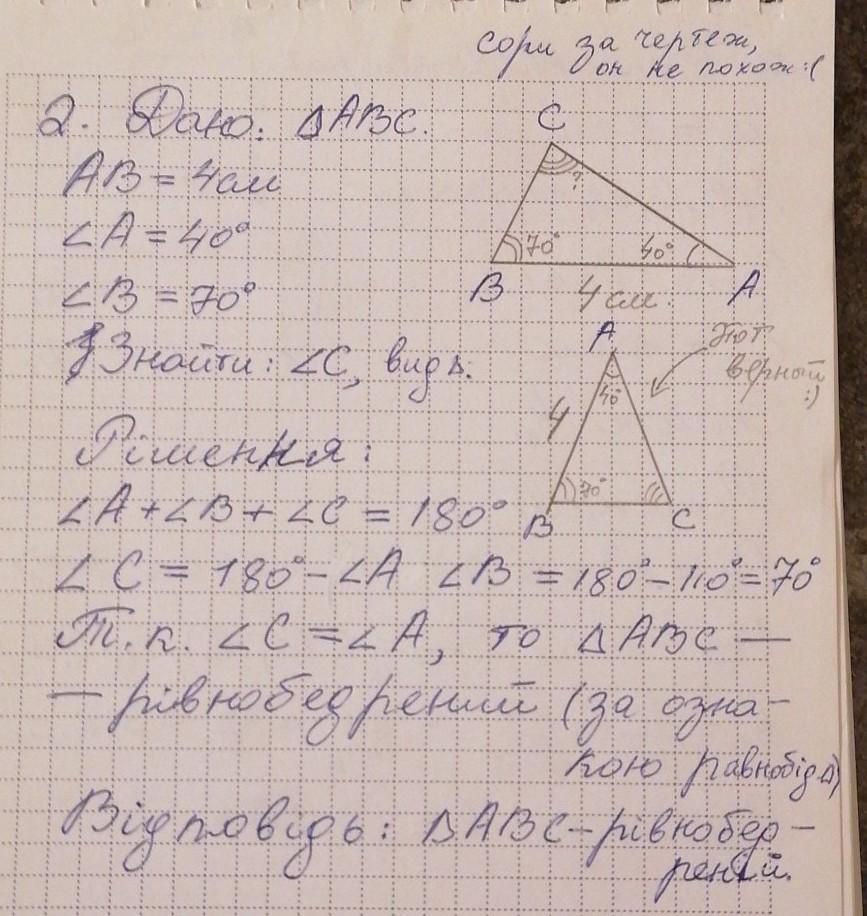 сори за чертеж,
он не похож :(
2. Дано: ΔABC.
AB = 4см
∠A = 40°
∠B = 70°
Знайти: ∠C, вид Δ.
C
?
70°
40°
B
4 см.
A
Этот
верный
:)
A
40°
4
70°
B
C
Рішення:
∠A + ∠B + ∠C = 180°
∠C = 180° - ∠A ∠B = 180° - 110° = 70°
Т.к. ∠C = ∠A, то ΔABC —
— рівнобедрений (за озна-
кою равнобід. Δ)
Відповідь: ΔABC - рівнобед-
рений.